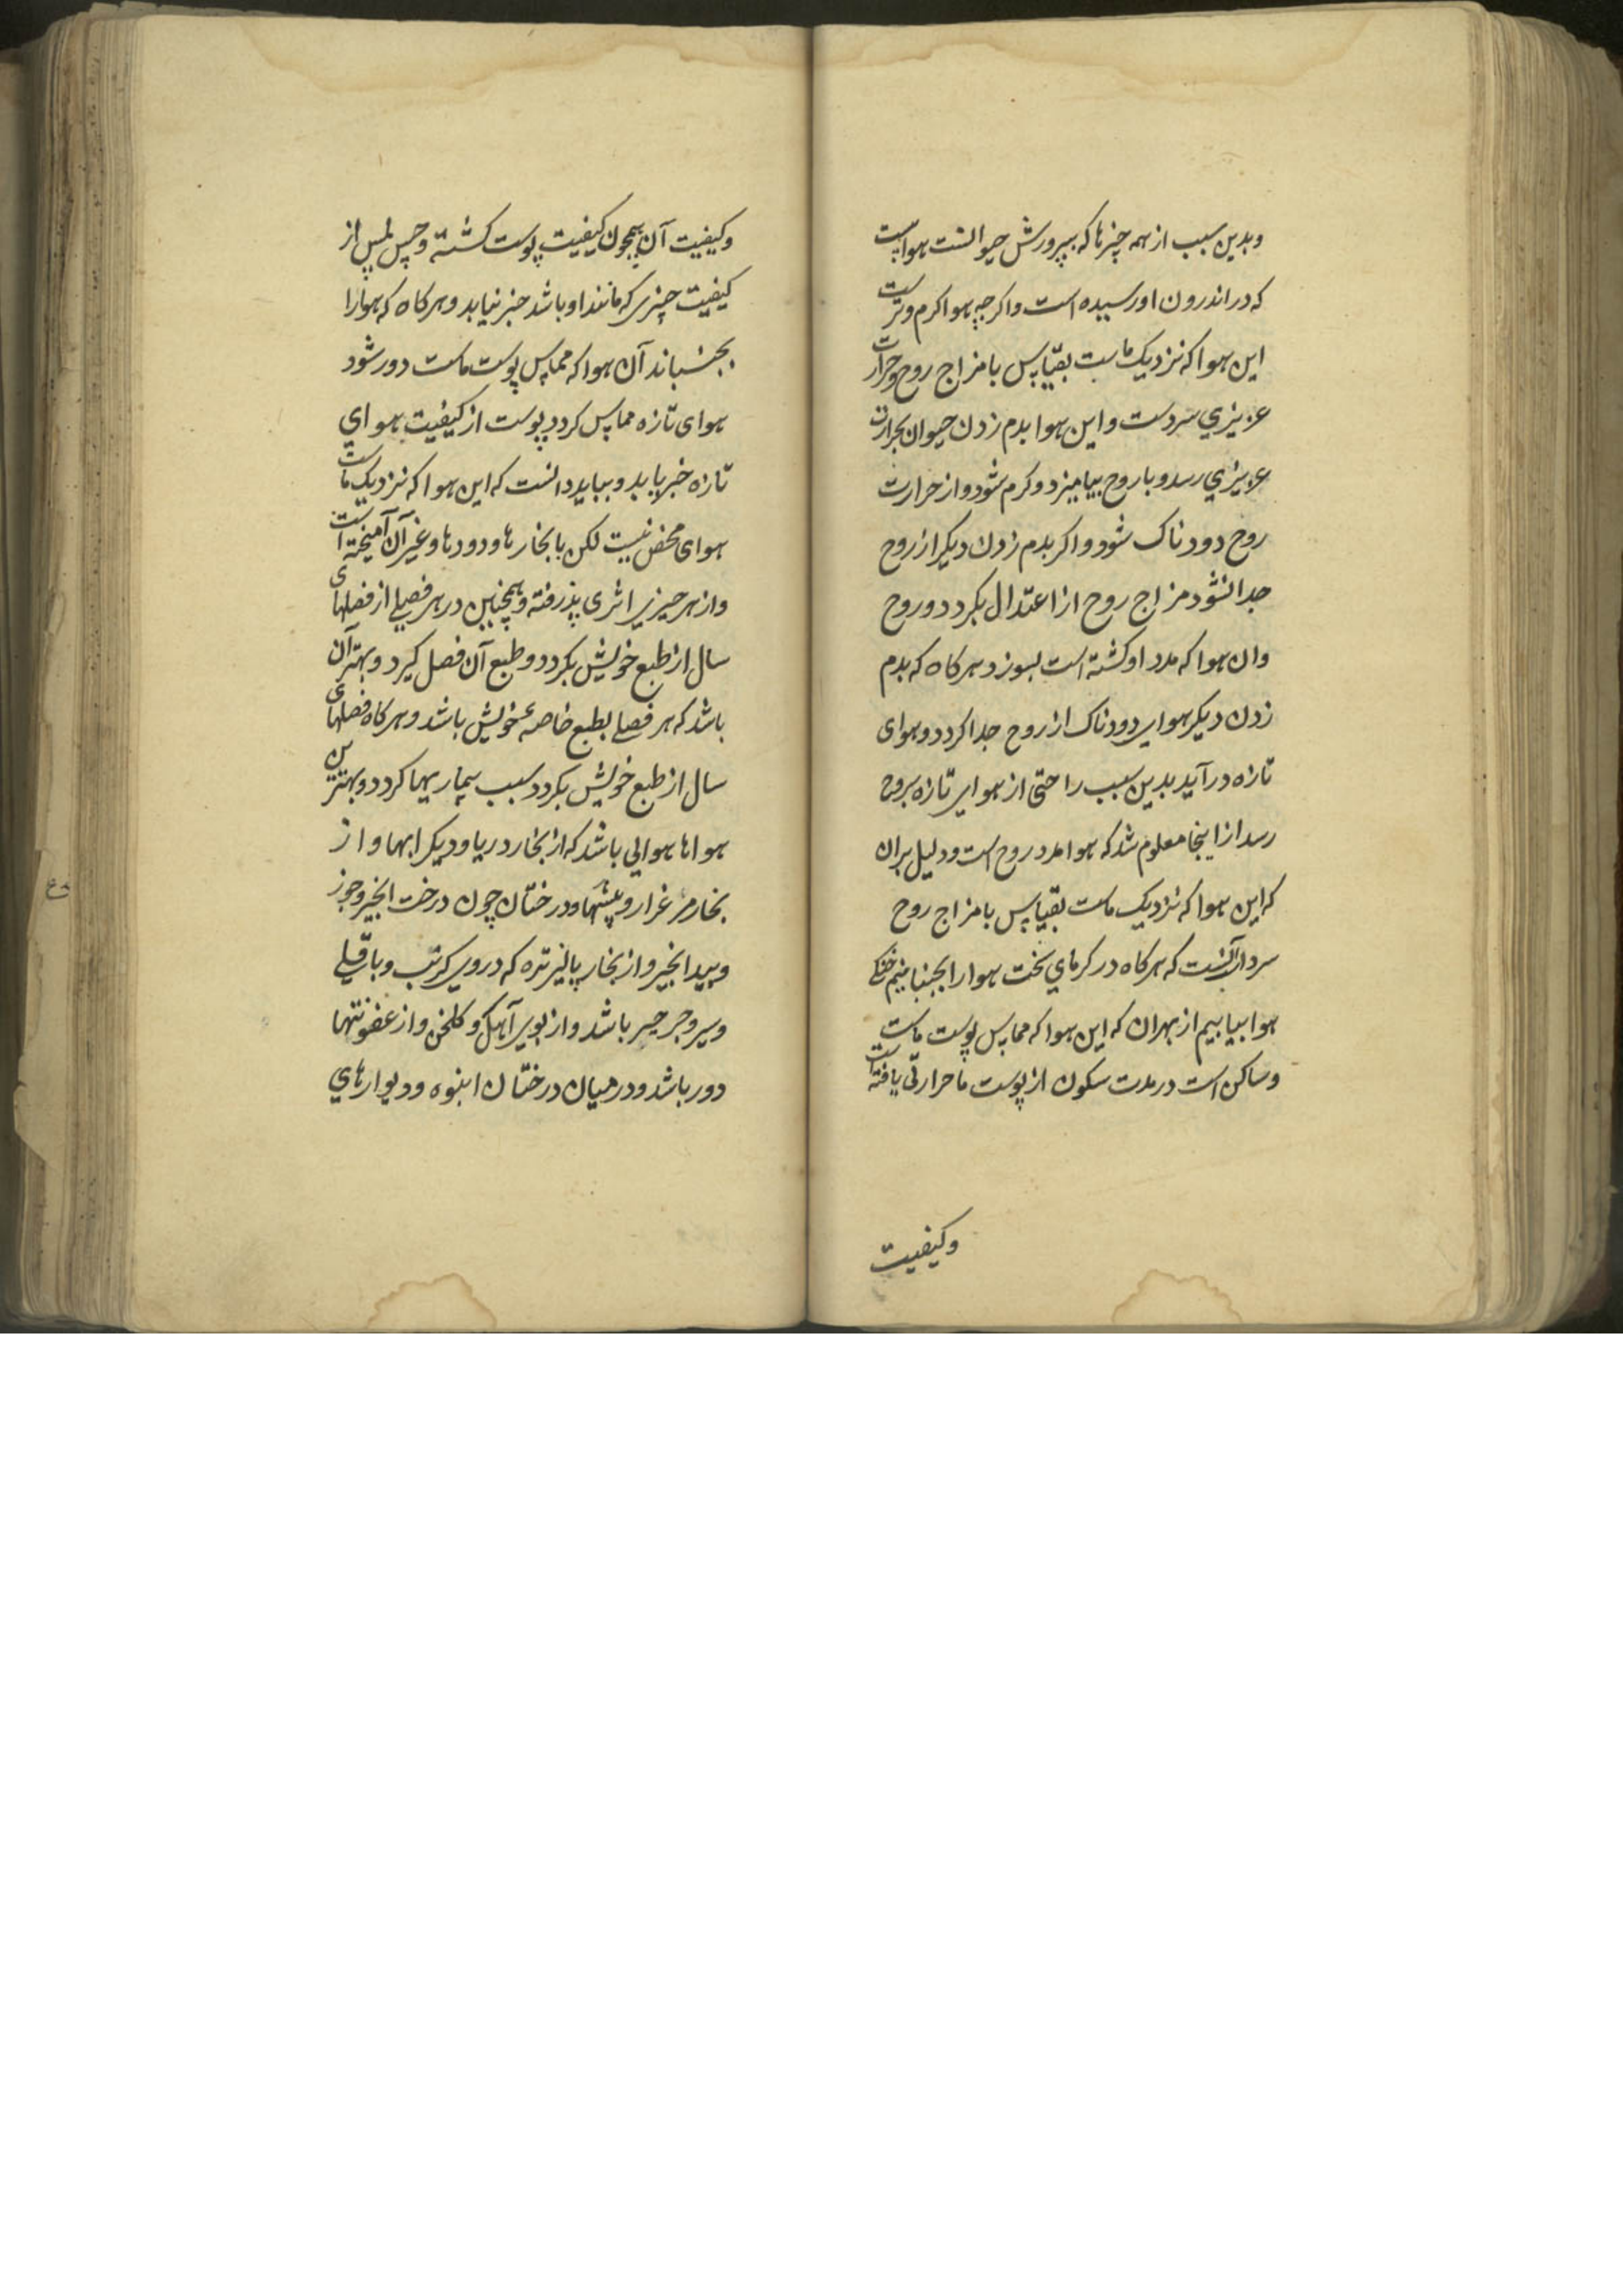 وبدین سبب از همه چیزها که بپرورش حیوانست هواست
که در اندرون او رسیده است واکرچه هوا کرم وترست
این هوا که نزدیک ماست بقیاس با مزاج روح وحرارت
عزیزي سردست واین هوا بدم زدن حیوان بحرارت
عزیزي رسد وبا روح بیامیزد وکرم شود واز حرارت
روح دودناک شود واکر بدم زدن دیکر از روح
جدا نشود مزاج روح از اعتدال بکردد وروح
وان هوا که مدد او کشته است بسوزد وهرکاه که بدم
زدن دیکر هوای دودناک از روح جدا کردد وهوای
تازه درآید بدین سبب راحتی از هوای تازه بروح
رسد از اینجا معلوم شد که هوا مدد روح است ودلیل بران
که این هوا که نزدیک ماست بقیاس با مزاج روح
سردست آنست که هرکاه در کرماي سخت هوا را بجنبانیم خنکی
هوا بیابیم از بهران که این هوا که مماس پوست ماست
وساکن است در مدت سکون از پوست ما حرارتی یافته است
وکیفیت
وکیفیت آن همچون کیفیت پوست کشته وحس لمس از
کیفیت چیزی که مانند او باشد خبر نیابد وهرکاه که هوا را
بجنباند آن هوا که مماس پوست ماست دور شود
هوای تازه مماس کردد پوست از کیفیت هواي
تازه خبر یابد وبباید دانست که این هوا که نزدیک ماست
هوای محض نیست لکن با بخارها ودودها وغیر آن آمیخته است
واز هر چیزی اثری پذرفته وهمچنین در هر فصلی از فصلهای
سال از طبع خویش بکردد وطبع آن فصل کیرد وبهتر آن
باشد که هر فصلی بطبع خاصهٔ خویش باشد وهرکاه فصلهای
سال از طبع خویش بکردد سبب بیماریها کردد وبهترین
هواها هوایی باشد که از بخار دریا ودیکر ابها واز
بخار مرغزار وبیشها ودرختان چون درخت انجیر وجوز
وبیدانجیر واز بخار پالیز تره که دروی کرنب وباقلی
وسیر وجرجیر باشد واز بوی آهک وکلخن واز عفونتها
دور باشد ودر میان درختان انبوه ودیوارهاي